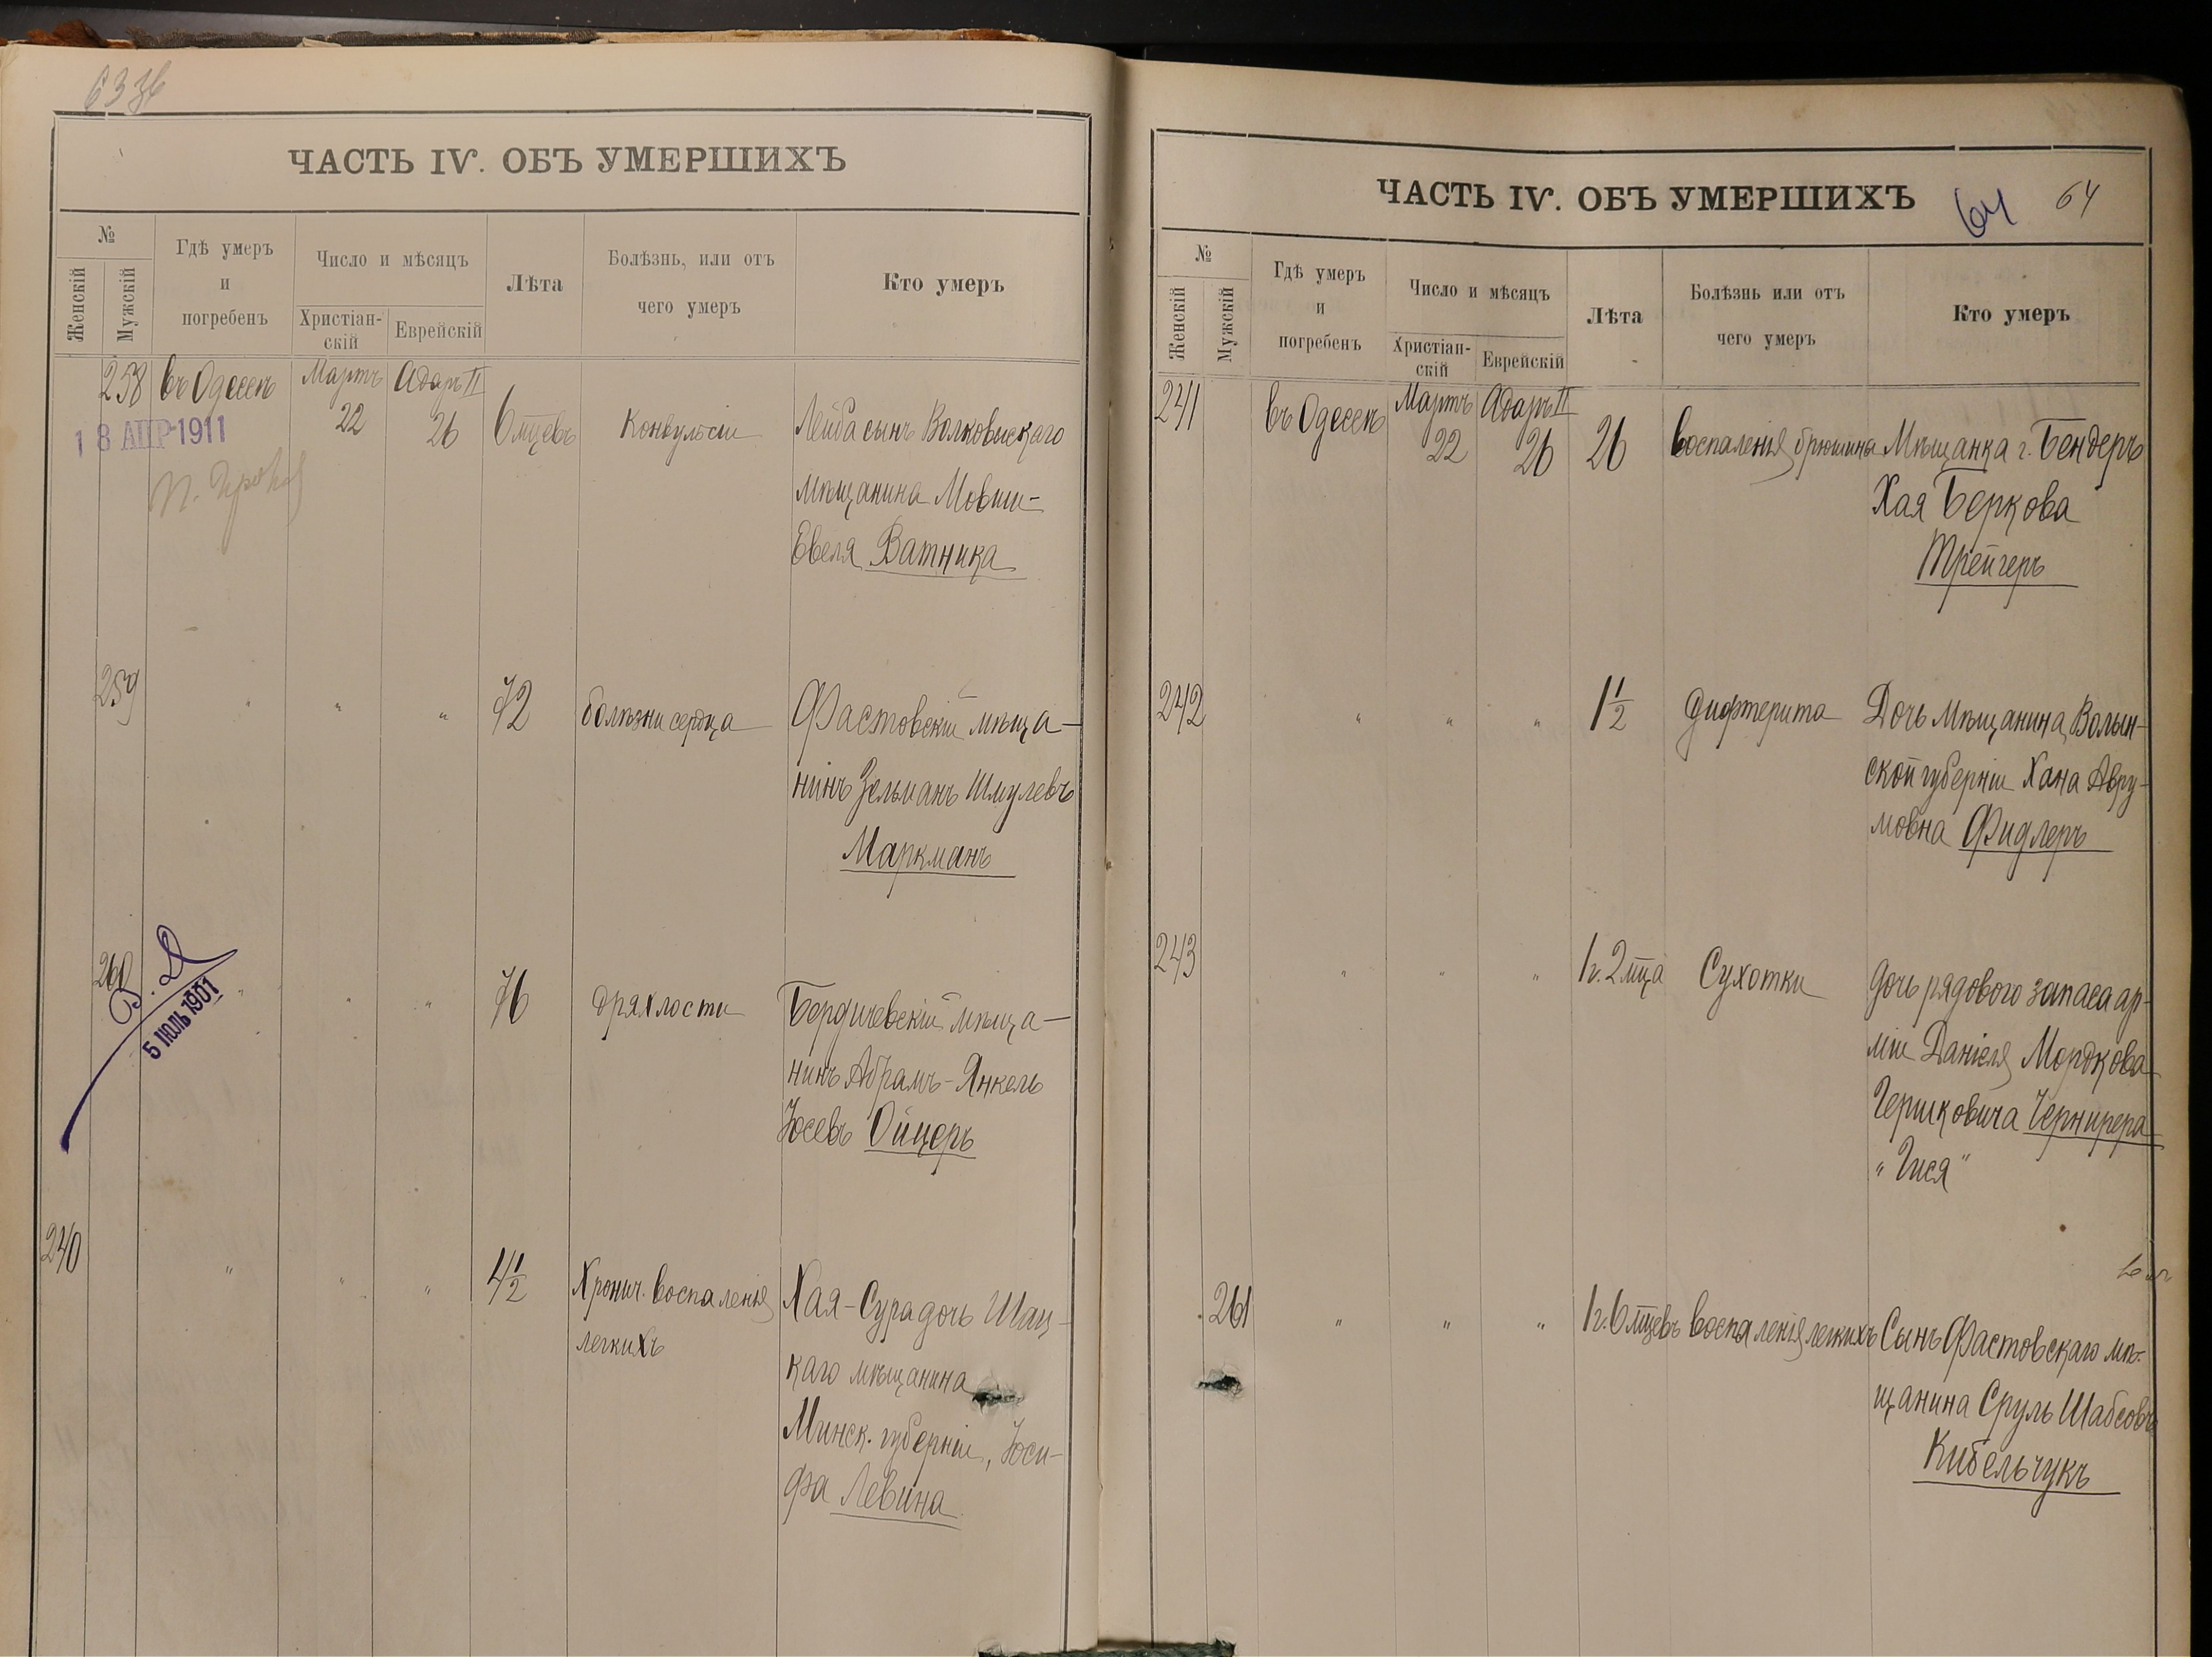 63 зв
ЧАСТЬ IV. ОБЪ УМЕРШИХЪ
№
Женскій
Мужскій
Гдѣ умеръ
и
погребенъ
Число и мѣсяцъ
Христіан-
скій
Еврейскій
Лѣта
Болѣзнь, или отъ
чего умеръ
Кто умеръ
258 въ Одессѣ Мартъ Адаръ II
22 26 6 мцевъ Конвульсіи Лейба сынъ Волковискаго
18 АПР 1911
мѣщанина Мовши-
Евеля Ватника
259 " " " 72 болѣзни сердца Фастовскій мѣща-
нинъ Зельманъ Шмулевъ
Маркманъ
260 " " " 76 дряхлости Бердичевскій мѣща-
В. Д
5 ІЮЛЬ 1901
нинъ Абрамъ-Янкель
Іосевъ Ойцеръ
240 " " " 4 1/2 Хронич. воспаленія Хая-Сура дочь Шац-
легкихъ
каго мѣщанина
Минск. губерніи, Іоси-
фа Левина
ЧАСТЬ IV. ОБЪ УМЕРШИХЪ 64 64
№
Женскій
Мужскій
Гдѣ умеръ
и
погребенъ
Число и мѣсяцъ
Христіан-
скій
Еврейскій
Лѣта
Болѣзнь или отъ
чего умеръ
Кто умеръ
241 въ Одессѣ Мартъ Адаръ II
22 26 26 воспаленія брюшина Мѣщанка г. Бендеръ
Хая Беркова
Трейгеръ
242 " " " 1 1/2 дифтерита Дочь мѣщанина Волын-
ской губерніи Хана Авру-
мовна Фидлеръ
243 " " " 1 г. 2 мца Сухотки дочь рядового запаса ар-
міи Даніеля Мордкова
Гершковича Чернирера
"Гися"
261 " " " 1 г. 6 мцевъ воспаленія легкихъ Сынъ Фастовскаго мѣ-
щанина Сруль Шабсовъ
Кибельчукъ